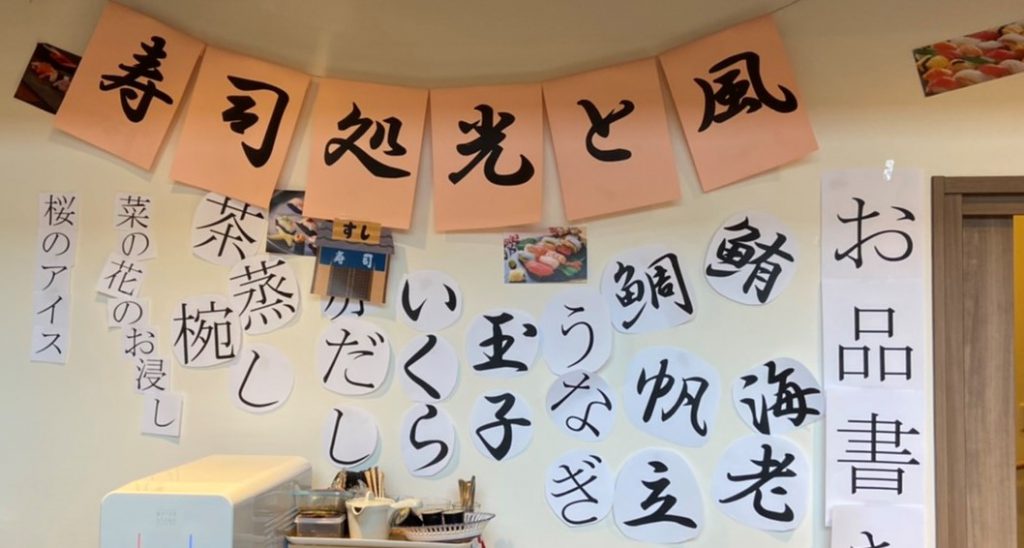 寿司処光と風
お品書き
鮪
海老
鯛
帆立
うなぎ
玉子
いくら
だし
茶蒸し
椀
菜の花のお浸し
桜のアイス
すし
寿司